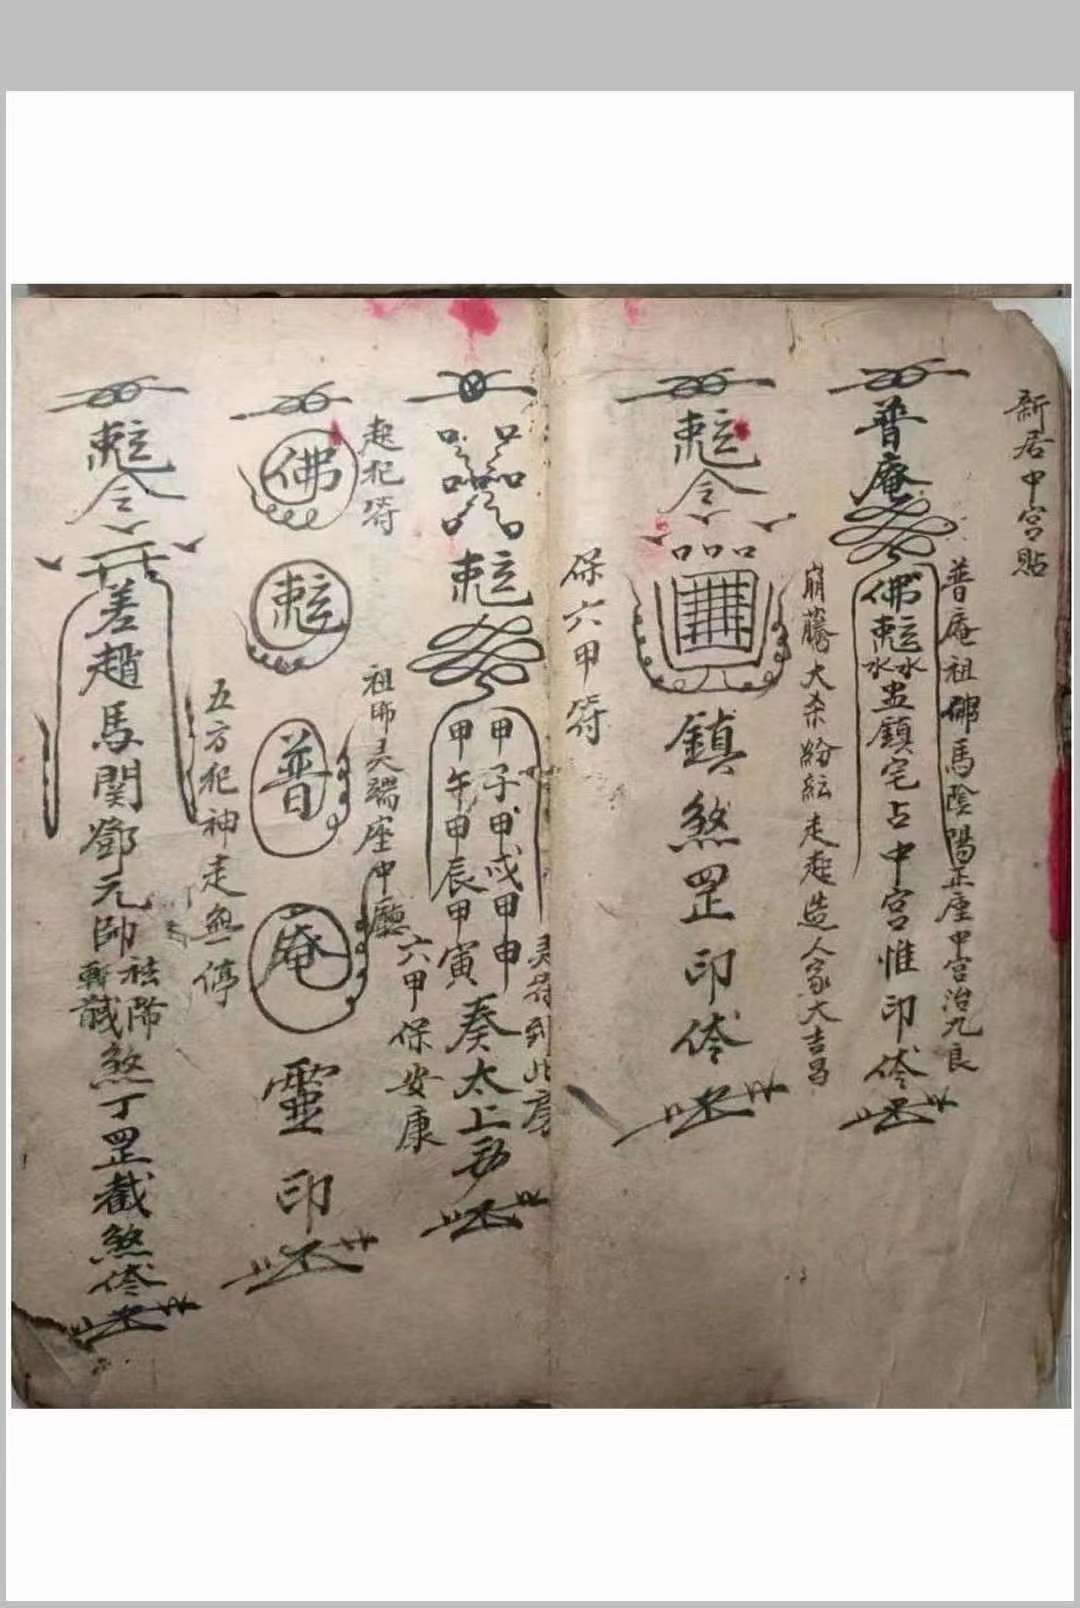 新居中宮貼
普庵祖佛馬陰陽正座中宮治九良
普庵
佛勅
水水
鎮宅占中宮惟印
崩騰大杀紛紜走起造人家大吉昌
勅令
口口口
鎮煞罡印
保六甲符
灵符到此
勅
甲子甲戌甲申
甲午甲辰甲寅
奏太上
六甲保安康
起犯符
祖师灵端座中廳
佛
勅
普
庵
靈印
五方犯神走無停
勅令
差趙馬関鄧元帥
煞丁罡截煞